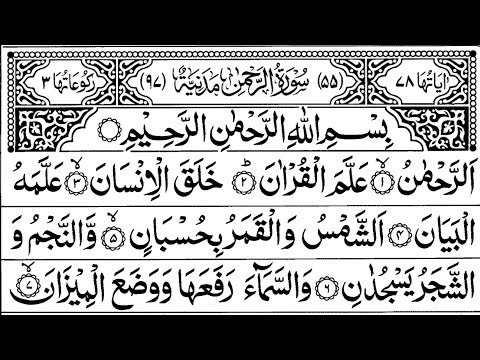 اٰیَاتُهَا ٧٨ (٥٥) سُوْرَةُ الرَّحْمٰنِ مَدَنِيَّةٌ (٩٧) رُكُوْعَاتُهَا ٣
بِسْمِ اللهِ الرَّحْمٰنِ الرَّحِيْمِ
اَلرَّحْمٰنُ ۙ﴿١﴾ عَلَّمَ الْقُرْاٰنَ ؕ﴿٢﴾ خَلَقَ الْاِنْسَانَ ۙ﴿٣﴾ عَلَّمَهُ
الْبَيَانَ ﴿٤﴾ اَلشَّمْسُ وَالْقَمَرُ بِحُسْبَانٍ ۙ﴿٥﴾ وَّالنَّجْمُ وَ
الشَّجَرُ يَسْجُدٰنِ ﴿٦﴾ وَالسَّمَآءَ رَفَعَهَا وَوَضَعَ الْمِيْزَانَ ۙ﴿٧﴾